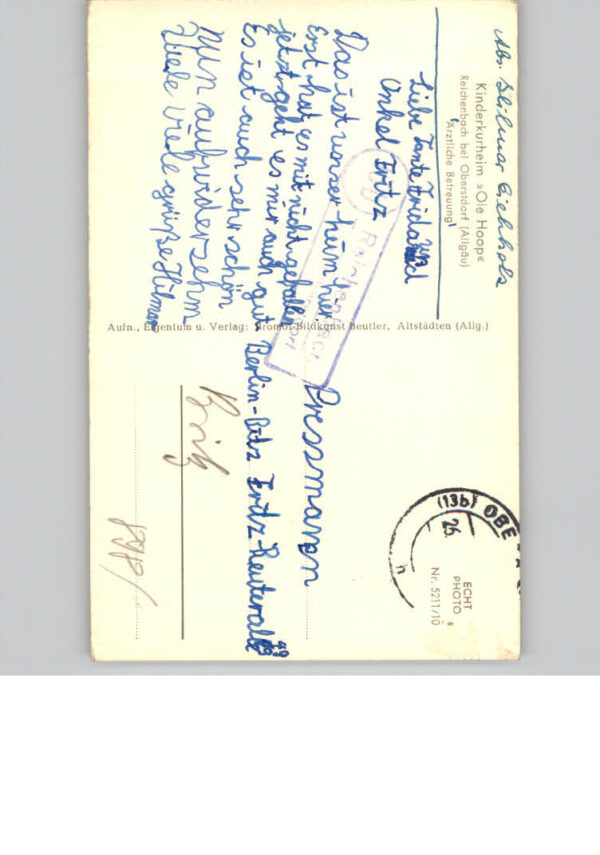 Abs. Hilmar Eichholz
Kinderkurheim »Ole Hoop«
Reichenbach bei Oberstdorf (Allgäu)
Ärztliche Betreuung!
Liebe Tante Frida und
Onkel Fritz
Das ist unser heim hier.
Erst hat es mit nicht gefallen
jetzt geht es mir auch gut
Es ist auch sehr schön
Nun aufwidersehn
Viele Viele grüße Hilmar
Aufn., Eigentum u. Verlag: Bromot-Bildkunst Beutler, Altstädten (Allg.)
ECHT
PHOTO
Nr. 5211/10
(13b) OBE
26
h
Reichenbach
Pressmann
Berlin-Britz Fritz-Reuterallee
Britz